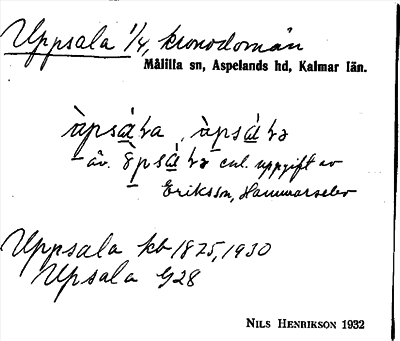 Uppsala 1/4, kronodomän
Målilla sn, Aspelands hd, Kalmar län.
àpsála, àpsálə
äv. èpsálə enl. uppgift av
Eriksson, Hammarsebo
Uppsala kb 1875, 1930
Upsala G28
NILS HENRIKSON 1932